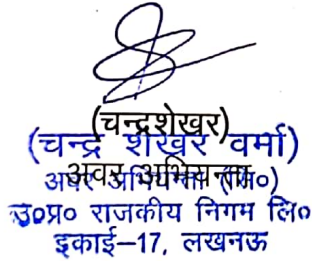 (चन्द्रशेखर)
(चन्द्र शेखर वर्मा)
अवर अभियन्ता
अवर अभियन्ता (सि०)
उ०प्र० राजकीय निगम लि०
इकाई-17, लखनऊ